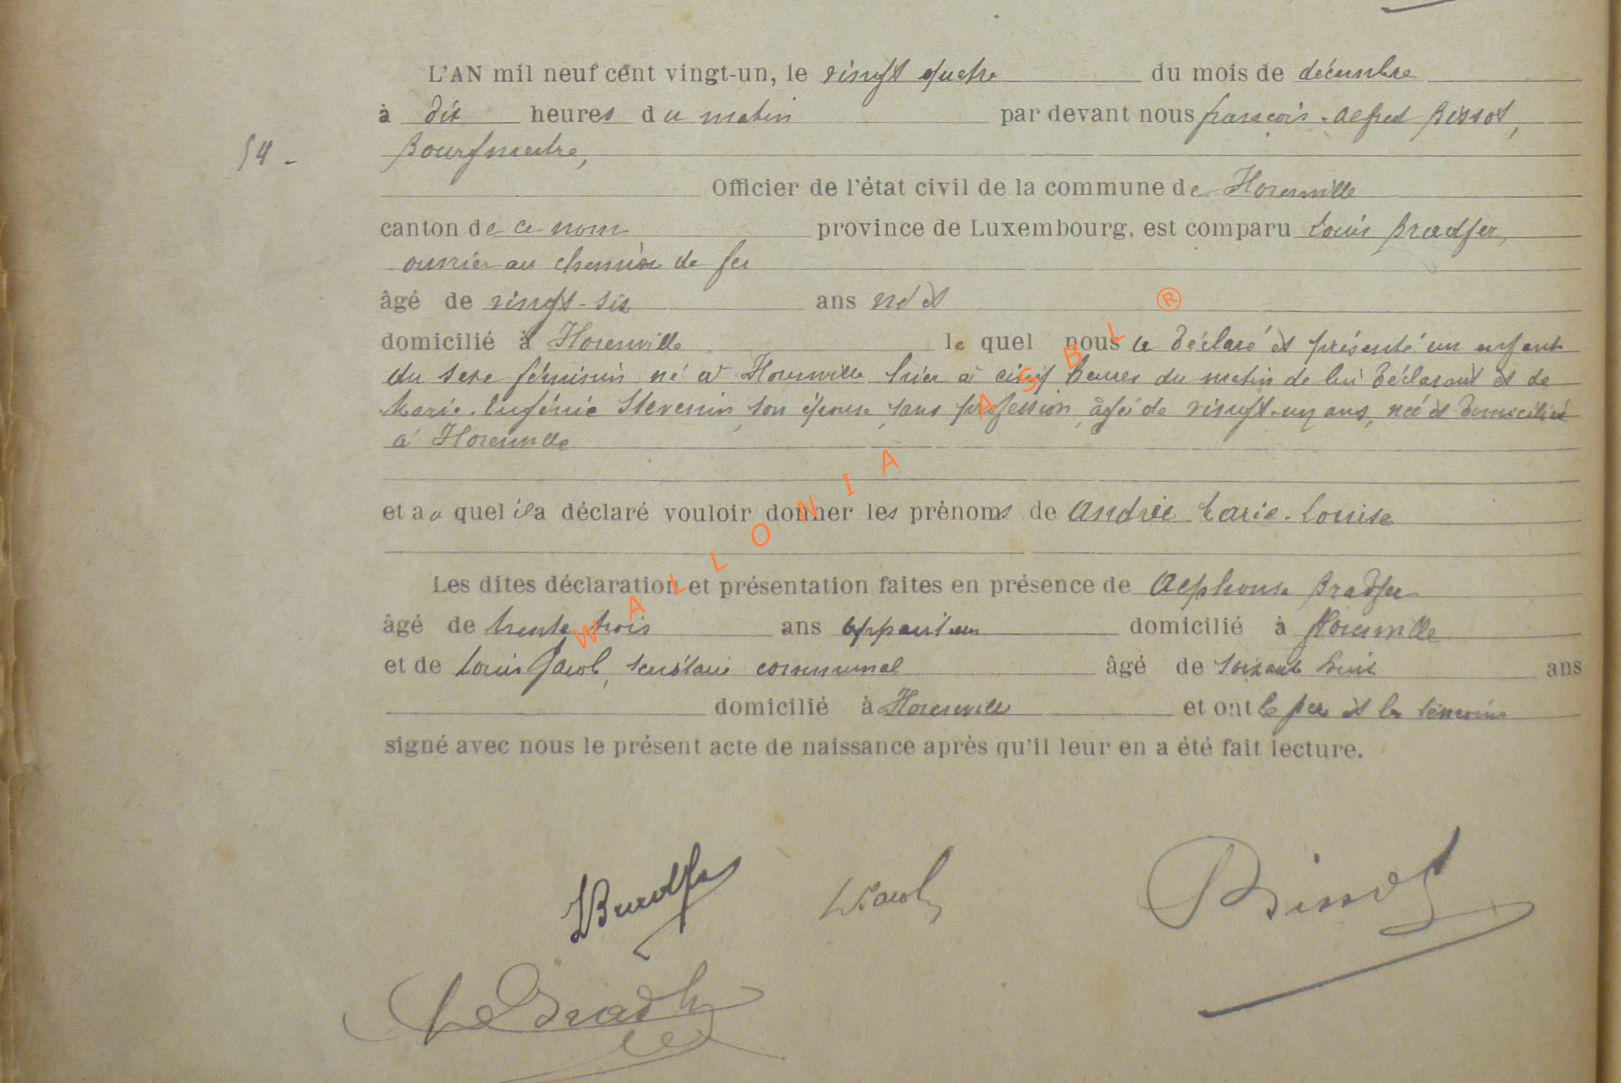 L'AN mil neuf cent vingt-un, le vingt quatre du mois de décembre
à dix heures du matin par devant nous françois-Alfred Bissot,
54 - Bourgmestre,
Officier de l'état civil de la commune de Florenville
canton de ce nom province de Luxembourg, est comparu Louis Bradfer,
ouvrier au chemin de fer
âgé de vingt-six ans né et
domicilié à Florenville lequel nous a déclaré et présenté un enfant
du sexe féminin né à Florenville hier à cinq heures du matin de lui déclarant et de
Marie-Eugénie Stevenin, son épouse, sans profession, âgée de vingt-un ans, née et domiciliée
à Florenville
et auquel il a déclaré vouloir donner les prénoms de Andrée Marie-Louise
Les dites déclaration et présentation faites en présence de Alphonse Bradfer
âgé de trente trois ans domicilié à Florenville
et de Louis Jacob, secrétaire communal âgé de soixante huit ans
domicilié à Florenville et ont le père et les témoins
signé avec nous le présent acte de naissance après qu'il leur en a été fait lecture.
WALLONIA ASBL ®
LBradfer LJacob Bissot
Bradfer